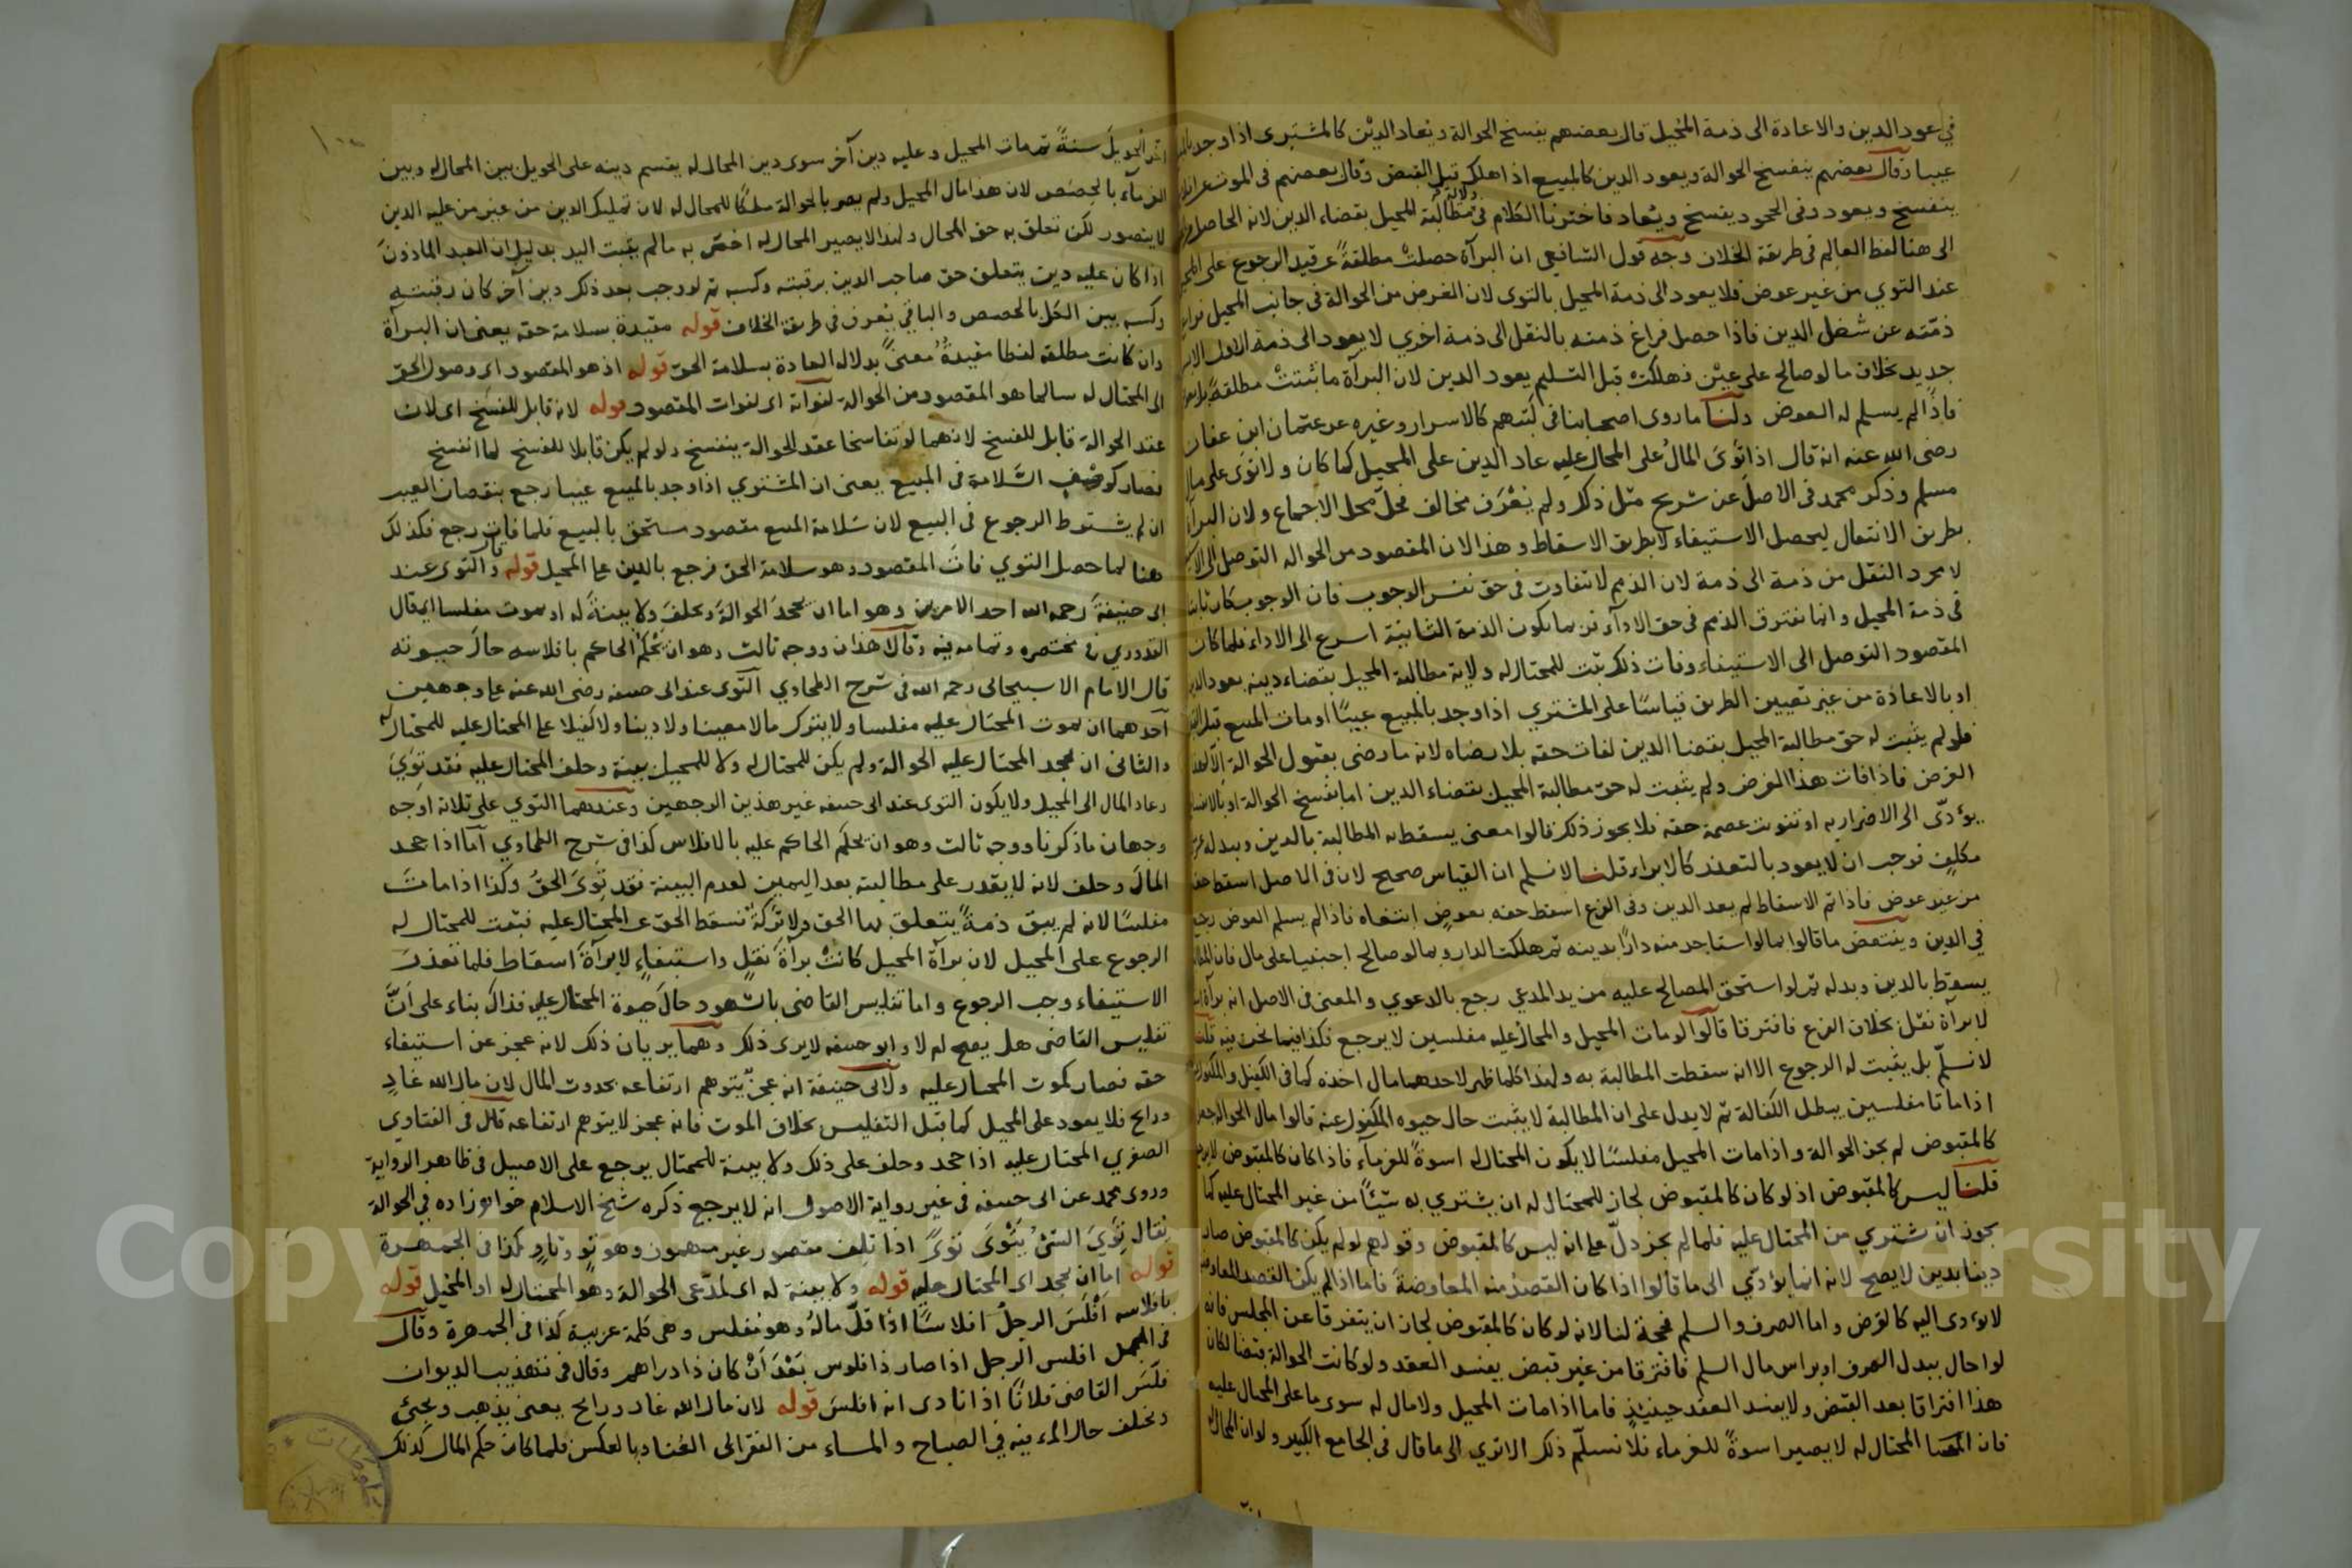 في عود الدين والاعادة الى ذمة المحيل قال بعضهم يفسخ الحوالة ويعاد الدين كالمشترى اذا وجد بالمبيع
عيبا وقال بعضهم ينفسخ الحوالة ويعود الدين كالمبيع اذا هلك قبل القبض وقال بعضهم في الموت
ينفسخ ويعود وفى الجحود يفسخ ويعاد فاخترنا الكلام فى ولاية مطالبة المحيل بقضاء الدين لانه الحاصل
الى هنا لفظ العالم في طريقة الخلاف وجه قول الشافعي ان البرآة حصلت مطلقة عن قيد الرجوع على المحيل
عند التوي من غير عوض فلا يعود الى ذمة المحيل بالتوى لان الغرض من الحوالة فى جانب المحيل
ذمته عن شغل الدين فاذا حصل فراغ ذمته بالنقل الى ذمة اخري لا يعود الى ذمة الاول الا
جديد بخلاف ما لو صالح على عين فهلكت قبل التسليم يعود الدين لان البرآة ما ثبتت مطلقة
فاذا لم يسلم له العوض ولنا ما روى اصحابنا فى كتبهم كالاسرار وغيره عن عثمان ابن عفان
رضى الله عنه انه قال اذا توى المال على المحال عليه عاد الدين على المحيل كما كان ولا توى على مال
مسلم وذكر محمد فى الاصل عن شريح مثل ذلك ولم يعرف مخالف فحل محل الاجماع ولان البرآة
بطريق الانتقال ليحصل الاستيفاء لا بطريق الاسقاط وهذا لان المقصود من الحواله التوصل الى
لا مجرد النقل من ذمة الى ذمة لان الذمم لا تتفاوت فى حق نفس الوجوب فان الوجوب كان ثابتا
فى ذمة المحيل وانما تفترق الذمم فى حق الادآء فربما يكون الذمة الثانية اسرع الى الاداء فلما كان
المقصود التوصل الى الاستيفاء وفات ذلك ثبت للمحتال له ولاية مطالبة المحيل بقضاء دينه بعود الدين
او بالاعادة من غير تعيين الطريق قياسا على المشتري اذا وجد بالمبيع عيبا او مات المبيع قبل
فلو لم يثبت له حق مطالبة المحيل بقضا الدين لفات حقه بلا رضاه لانه ما رضى بقبول الحوالة الا لهذا
الغرض فاذا فات هذا الغرض ولم يثبت له حق مطالبة المحيل بقضاء الدين اما بفسخ الحوالة او بالانفساخ
يؤدى الى الاضرار به او تفويت عصمة حقه فلا يجوز ذلك قالوا معنى يسقط به المطالبة بالدين وبدله
مكلف فوجب ان لا يعود بالتعذر كالابراء قلنا لا نسلم ان القياس صحيح لان فى الاصل اسقط حقه
من غير عوض فاذا تم الاسقاط لم يعد الدين وفى الفرع اسقط حقه بعوض ابتغاه فاذا لم يسلم العوض رجع
في الدين وينتقض ما قالوا بما لو استاجر منه دارا بدينه ثم هلكت الدار وبما لو صالح اجنبيا على مال فان
يسقط بالدين وبدله ثم لو استحق المصالح عليه من يد المدعي رجع بالدعوي والمعنى فى الاصل انه برآة
لا برآة نقل بخلاف الفرع فافترقا قالوا لو مات المحيل والمحال عليه مفلسين لا يرجع فكذا فيما نحن فيه قلنا
لا نسلم بل يثبت له الرجوع الا انه سقطت المطالبة به ولهذا كلما ظهر لاحدهما مال اخذه كما فى الكفيل والمكفول
اذا ماتا مفلسين يبطل الكفالة ثم لا يدل على ان المطالبة لا يثبت حال حيوه المكفول عنه قالوا مال الحوالة
كالمقبوض لم يجز الحوالة واذا مات المحيل مفلسا لا يكون المحتال له اسوة للغرمآء فاذا كان كالمقبوض
قلنا ليس كالمقبوض اذ لو كان كالمقبوض لجاز للمحتال له ان يشتري به شيئا من غير المحتال عليه كما
يجوز ان يشتري من المحتال عليه فلما لم يجز دل على انه ليس كالمقبوض وقولهم لو لم يكن كالمقبوض صار
دينا بدين لا يصح لانه انما يؤدي الى ما قالوا اذا كان القصد منه المعاوضة فاما اذا لم يكن القصد المعاوضة
لا يؤدى اليه كالقرض واما الصرف والسلم فحجة لنا لانه لو كان كالمقبوض لجاز ان يتفرقا عن المجلس فانه
لو احال ببدل الصرف او براس مال السلم فافترقا من غير قبض يفسد العقد ولو كانت الحوالة قبضا لكان
هذا افتراقا بعد القبض ولا يفسد العقد حينئذ فاما اذا مات المحيل ولا مال له سوى ما على المحال عليه
فان المحتال له لا يصير اسوة للغرماء فلا نسلم ذلك الا ترى الى ما قال فى الجامع الكبير ولو ان المحال
الحويل سنة ثم مات المحيل وعليه دين آخر سوى دين المحال له يقسم دينه على الحويل بين المحال له وبين
الغرمآء بالحصص لان هذا مال المحيل ولم يصر بالحوالة ملكا للمحال له لان تمليك الدين من غير من عليه الدين
لا يتصور لكن تعلق به حق المحال ولهذا لا يصير المحال له اخص به ما لم يثبت اليد بدليل ان العبد الماذون
اذا كان عليه دين يتعلق حق صاحب الدين برقبته وكسبه ثم لو وجب بعد ذلك دين آخر كان رقبته
وكسبه بين الكل بالحصص والباقي يعرف في طريقة الخلاف قوله مقيدة بسلامة حقه يعنى ان البرآة
وان كانت مطلقة لفظا مقيدة معنى بدلالة العادة بسلامة الحق قوله اذ هو المقصود اى وصول الحق
الى المحتال له سالما هو المقصود من الحوالة لفواته اى لفوات المقصود قوله لانه قابل للفسخ اى لان
عقد الحوالة قابل للفسخ لانهما لو تفاسخا عقد الحوالة ينفسخ ولو لم يكن قابلا للفسخ لما انفسخ
فصار كوصف السلامة فى المبيع يعنى ان المشتري اذا وجد بالمبيع عيبا رجع بنقصان العيب
ان لم يشترط الرجوع فى البيع لان سلامة المبيع مقصود مستحق بالبيع فلما فات رجع فكذلك
هنا لما حصل التوي فات المقصود وهو سلامة الحق فرجع بالدين على المحيل قوله قال والتوى عند
ابى حنيفة رحمه الله احد الامرين وهو اما ان يجحد الحوالة ويحلف ولا بينة له او يموت مفلسا اى قال
القدوري فى مختصره وتمامه فيه وقالا هذان ووجه ثالث وهو ان يحكم الحاكم بافلاسه حال حيوته
قال الامام الاسبيجابى رحمه الله فى شرح الطحاوي التوى عند ابى حنيفه رضى الله عنه على وجهين
احدهما ان يموت المحتال عليه مفلسا ولا يترك مالا معينا ولا دينا ولا كفيلا على المحتال عليه للمحتال له
والثانى ان يجحد المحتال عليه الحوالة ولم يكن للمحتال له ولا للمحيل بينة وحلف المحتال عليه فقد توى
وعاد المال الى المحيل ولا يكون التوى عند ابى حنيفه غير هذين الوجهين وعندهما التوي على ثلاثة اوجه
وجهان ما ذكرنا ووجه ثالث وهو ان يحكم الحاكم عليه بالافلاس كذا فى شرح الطحاوي اما اذا جحد
المال وحلف لانه لا يقدر على مطالبته بعد اليمين لعدم البينة فقد توى الحق وكذا اذا مات
مفلسا لانه لم يبق ذمة يتعلق بها الحق ولا تركة فسقط الحق عن المحتال عليه فثبت للمحتال له
الرجوع على المحيل لان برآة المحيل كانت برآة نقل واستيفاء لا برآة اسقاط فلما تعذر
الاستيفاء وجب الرجوع واما تفليس القاضى بالشهود حال حيوة المحتال عليه فذاك بناء على ان
تفليس القاضى هل يصح ام لا وابو حنيفه لا يرى ذلك وهما يريان ذلك لانه عجز عن استيفاء
حقه فصار كموت المحتال عليه ولابى حنيفة انه عجز يتوهم ارتفاعه بحدوث المال لان مال الله غاد
ورايح فلا يعود على المحيل كما قبل التفليس بخلاف الموت فانه عجز لا يتوهم ارتفاعه قال فى الفتاوي
الصغري المحتال عليه اذا جحد وحلف على ذلك ولا بينة للمحتال يرجع على الاصيل فى ظاهر الرواية
وروى محمد عن ابى حنيفه فى غير رواية الاصول انه لا يرجع ذكره شيخ الاسلام خواهر زاده في الحوالة
يقال توي الشئ يتوى توى اذا تلف مقصور غير مهموز وهو تو وتاو كذا فى الجمهرة
قوله اما ان يجحد اى المحتال عليه قوله ولا بينة له اى لمدعى الحوالة وهو المحتال له او المحيل قوله
بافلاسه افلس الرجل افلاسا اذا قل ماله وهو مفلس وهى كلمة عربية كذا فى الجمهرة وقال
فى المجمل افلس الرجل اذا صار ذا فلوس بعد ان كان ذا دراهم وقال فى تهذيب الديوان
فلس القاضى فلانا اذا نادى انه افلس قوله لان مال الله غاد ورايح يعنى يذهب ويجئ
ويختلف حال المرء فيه في الصباح والمساء من الفقر الى الغنا وبالعكس فلما كان حكم المال كذلك
Copyright © King Saud University